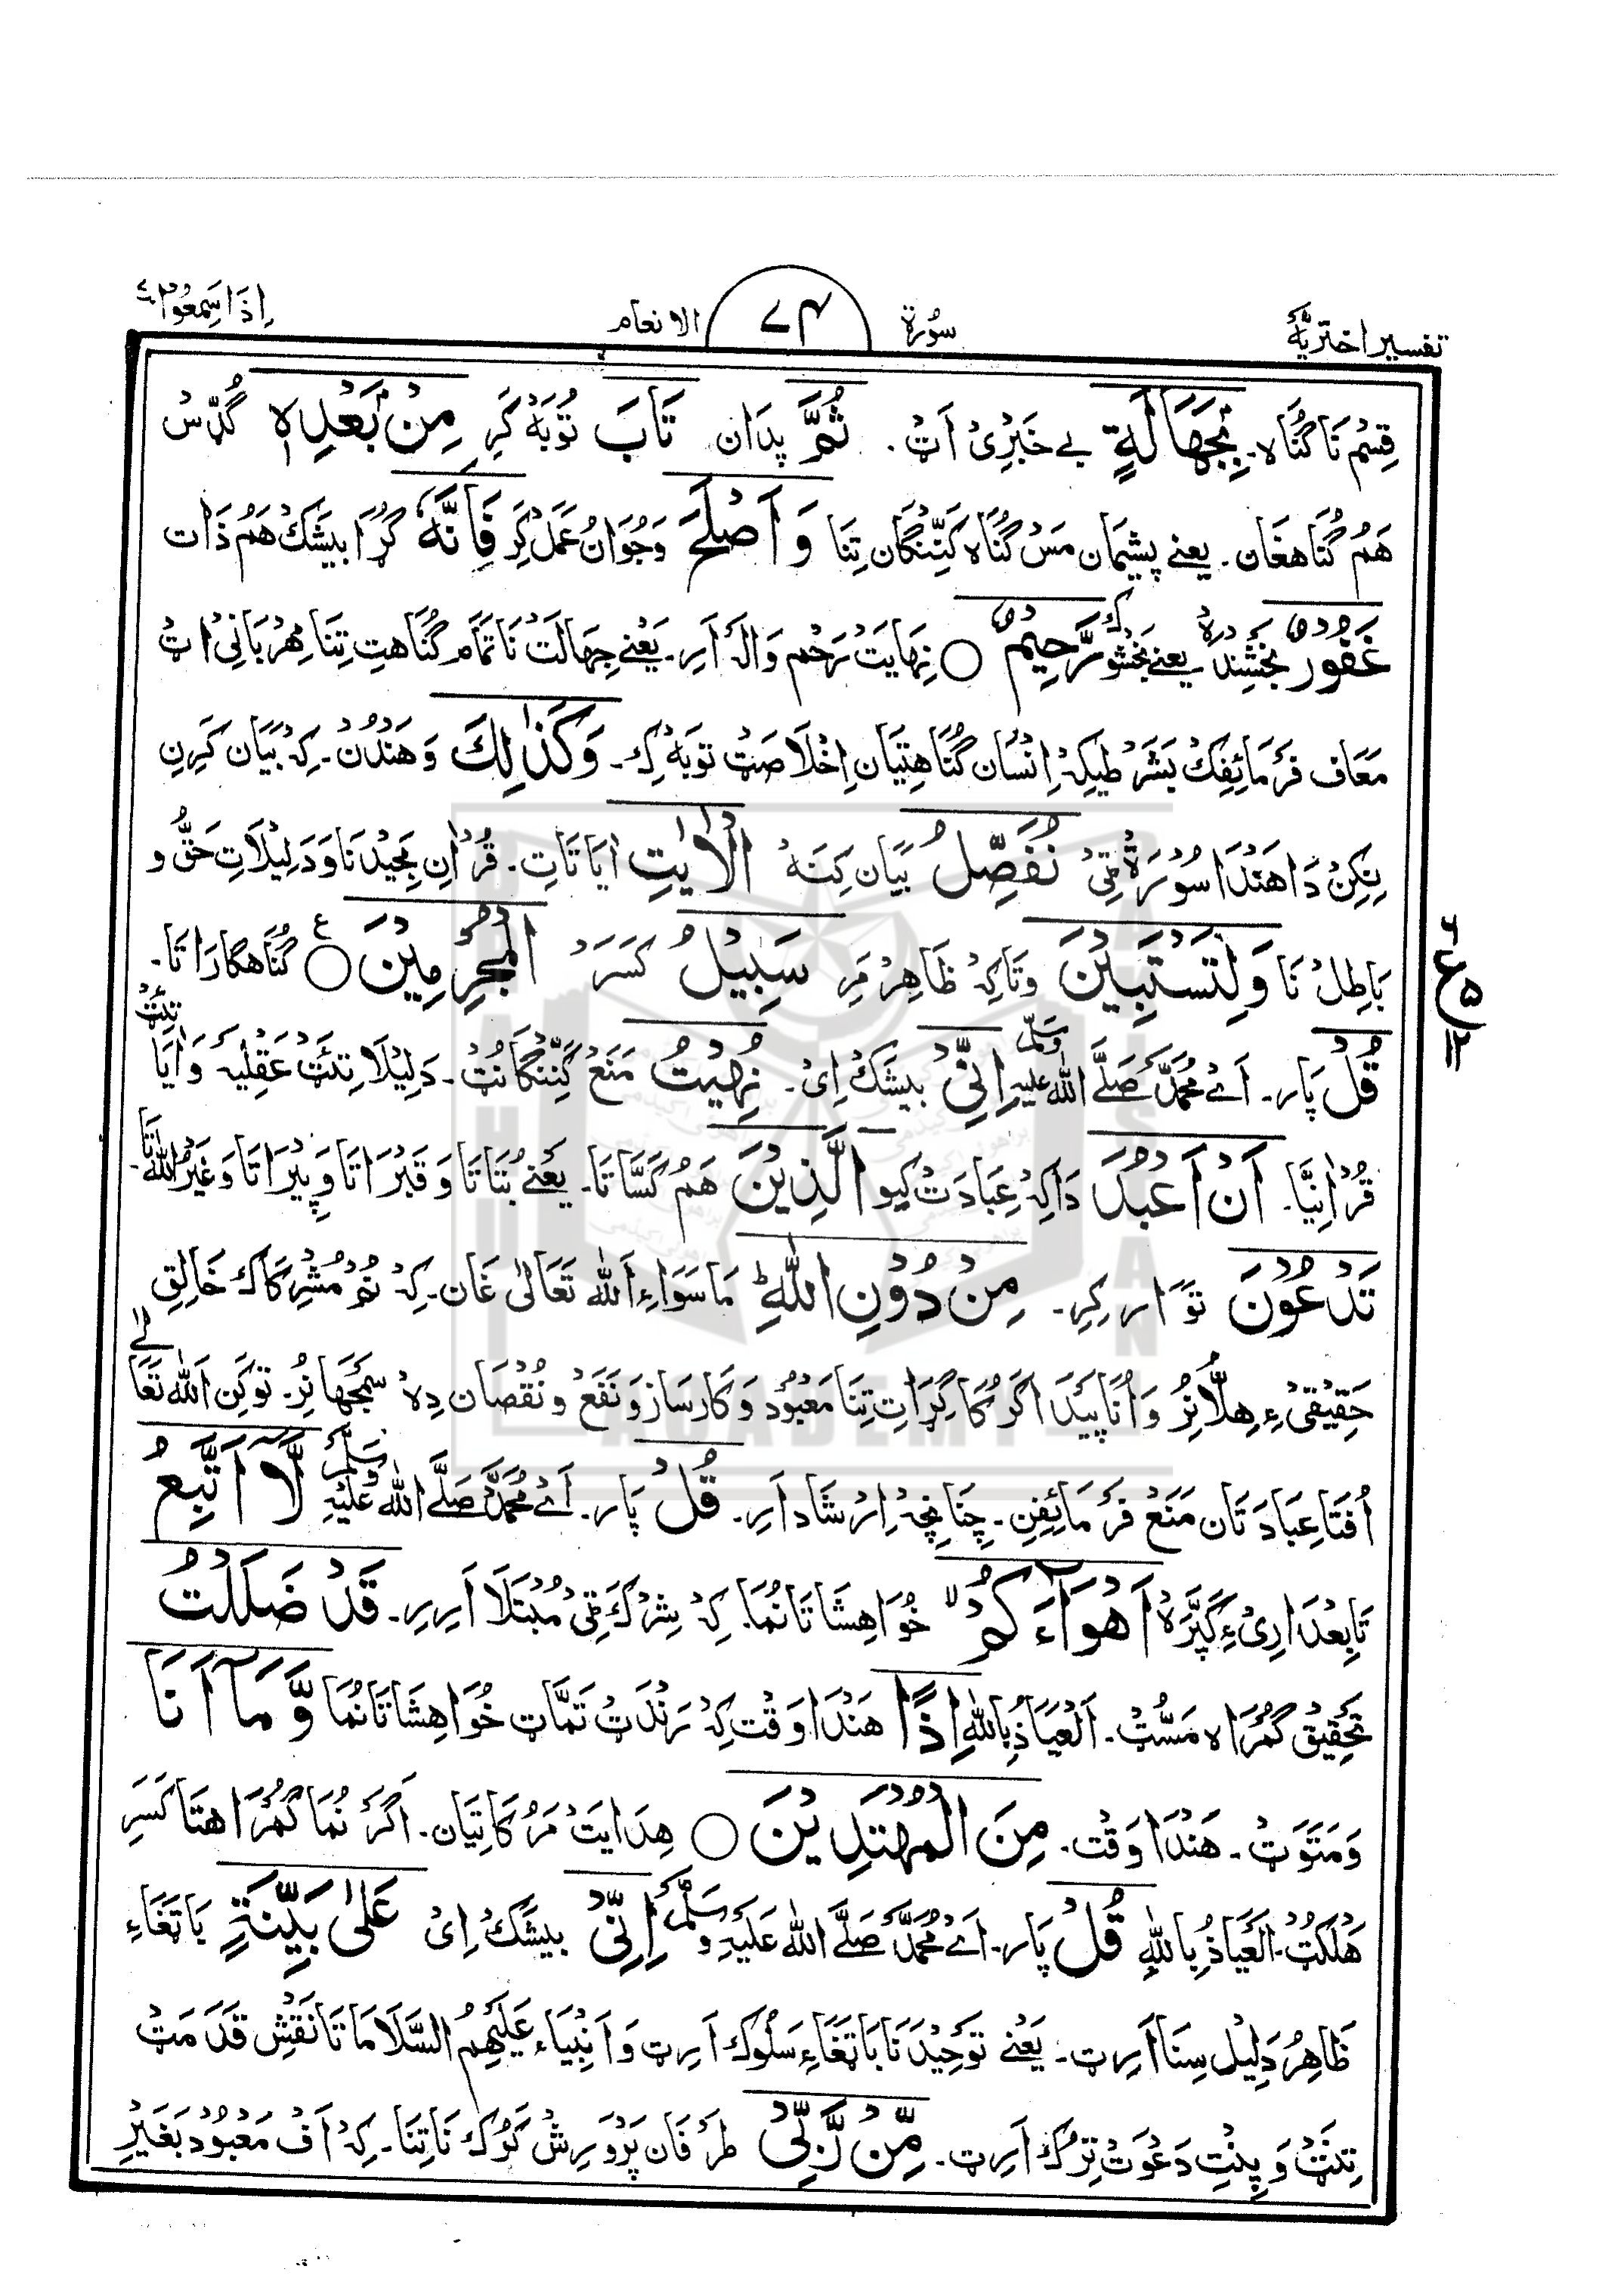 تفسیر اختریہ سُورۃ ۷۴ الانعام اِذَا سَمِعُوْا
قِسْم نَا گُنَاہ۔ بِجَهَالَةٍ بے خَبَرِیْ اَٹْ۔ ثُمَّ پِدَان تَابَ تَوْبَہْ کَرِ مِنْ بَعْدِهٖ گُڈْس
هَمُ گُنَاهغَان۔ یعنے پشیمان مَسْ گُنَاہ کَنِّنْگان تِنَا وَ اَصْلَحَ وَجُوَانُ عَمَلْ کَرِ فَاَنَّهٗ گُڑَا بیشَکْ هَمُ ذَات
غَفُوْرٌ بَخْشِنْدہ یعنے بَخْشُوْکْ رَّحِیْمٌ ○ نِهَایَتْ رَحْم وَالَہْ اَرِ۔ یَعْنے جِهَالَتْ نَا تَمَام گُنَاهتِ تِنَا مِهْرْبَانِیْ اَٹْ
مَعَاف فَرْمَائِفِکْ بَشَرْطیکِہْ اِنْسَان گُنَاهتِیَان اِخْلَاصَٹْ تَوبَہْ کِ۔ وَكَذٰلِكَ وَهَنْدُنْ۔ کِہْ بَیَان کَرِنِ
نِکِنْ دَا هَنْدَا سُوْرَةْ ٹِیْ نُفَصِّلُ بَیَان کِنَہْ الْاٰیٰتِ اٰیَاتَاتِ۔ قُرْاٰنِ مَجِیْدْنَا وَدَلِیْلَاتِ حَقُّ و
بَاطِلْ نَا وَلِتَسْتَبِیْنَ وَتَاکِہْ ظَاهِرْ مَرِ سَبِیْلُ کَسَرْ الْمُجْرِمِیْنَ ○ گُنَاهگارَاتَا۔
قُلْ پَار۔ اَے مُحَمَّدْ صَلَّے اللّٰہ عَلَیْہِ وَسَلَّمْ اِنِّیْ بیشَکْ اِیْ۔ نُهِیْتُ مَنَعْ کَنِّنْگانُٹْ۔ دَلِیْلَاتِئَٹْ عَقْلِیَہْ وَ اٰیَاتِئَٹْ
قُرْاٰنِیَّا۔ اَنْ اَعْبُدَ دَاکِہْ عِبَادَتْ کِیْو الَّذِیْنَ هَمُ کَسَّاتَا۔ یعنے بُتَاتَا وَقَبْرَاتَا وَپِیْرَاتَا وَغَیْرُ اللّٰہ تَا۔
تَدْعُوْنَ تَوَار کِرِ۔ مِنْ دُوْنِ اللّٰهِ مَاسَوَاءِ اَللّٰہ تَعَالٰی غَان۔ کِہْ نُمْ مُشْرِکَاک خَالِقِ
حَقِیْقِیْ ءِ هِلَّانِرُ وَ اُنَا پَیْدَا کَرُکَا گِرَاتِ تِنَا مَعْبُوْد وَکَارسَاز وَنَفَعْ و نُقْصَان دِہْ سَمْجَهانِرُ۔ تو کَنِ اَللّٰہ تَعَالٰے
اُفْتَا عِبَادَتَان مَنَعْ فَرْمَائِفِنِ۔ چِنَانچِہْ اِرْشَاد اَرِ۔ قُلْ پَار۔ اَے مُحَمَّدْ صَلَّے اللّٰہ عَلَیْہِ وَسَلَّمْ لَّاۤ اَتَّبِعُ
تَابِعْدَارِیْ ءِ کَپَّرَہْ اَهْوَآءَكُمْ خُوَاهِشَاتَا نُمَا۔ کِہْ شِرْکَ ٹِیْ مُبْتَلَا اَرِرِ۔ قَدْ ضَلَلْتُ
تَحْقِیْقْ گُمْرَاہ مَسُّٹ۔ اَلْعِیَاذُ بِاللّٰهِ اِذًا هَنْدَا وَقْت کِہْ رَنْدَٹْ تَمَّاٹ خُوَاهِشَاتَا نُمَا وَّ مَاۤ اَنَا
وَ مَتَوَٹْ۔ هَنْدَا وَقْت۔ مِنَ الْمُهْتَدِیْنَ ○ هِدَایَتْ مَرُکَاتِیَان۔ اَگَرْ نُمَا گُمْرَاهتَا کَسَرِ
هَلْکُٹْ۔ اَلْعَیَاذُ بِاللّٰهِ قُلْ پَار۔ اَے مُحَمَّدْ صَلَّے اللّٰہ عَلَیْہِ وَسَلَّمْ اِنِّیْ بیشَکْ اِیْ عَلٰی بَیِّنَةٍ بَاتَغَاءِ
ظَاهِرُ دَلِیْل سِنَا اَرِٹ۔ یَعْنے تَوحِیْدْنَا بَاتَغَاءِ سَلُوْک اَرِٹ وَ اَنْبِیَاء عَلَیْهِمُ السَّلَامَاتَا نَقْشِ قَدَمَٹْ
تِنَٹْ وَ پِنْتِ دَعْوَتْ تِرُکْ اَرِٹ۔ مِّنْ رَّبِّیْ طَرْفَان پَرْوَرِشْ کَرُکْ نَا تِنَا۔ کِہْ اَفْ مَعْبُوْد بَغَیْرِ